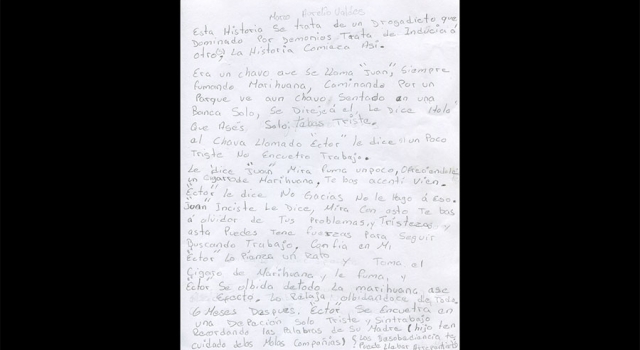 Aurelio Valdes
Esta Historia Se trata de un Drogadicto que
Dominado Por Demonios, Trata de Inducir a
otro(s) La Historia Comieza Asi.
Era un chavo que se llama "Juan", Siempre
fumando Marihuana, Caminando Por un
Parque ve aun Chavo Sentado en una
Banca Solo, Se Dirije a el, Le Dice Hola
Que Ases Solo, Triste.
al Chavo Llamado "Ector" le dice si un Poco
Triste No Encuetro Trabajo.
Le dice "Juan" Mira fuma unpoco, Ofreciendole
un cigarro de Marihuana, Te bas acentir Vien.
"Ector" le dice No Gacias No le Hago á Eso.
"Juan" Inciste Le Dice, Mira Con esto Te bas
á olvidar de Tus Problemas, y Tristezas y
asta Puedes Tene fuerzas Para Seguir
Buscando Trabajo. Confia en Mi
"Ector" Lo Pianca un Rato y Toma el
Cigago de Marihuana y le fuma, y
"Ector" Se olbida de todo La marihuana ase
Efecto. Lo Relaja olbidandoce de Todo.
6 Meses Despues. "Ector" Se Encuetra en
una Solo Triste y Sintrabajo
Recordando las Palabras de Su Madre (hijo ten
cuidado de los Malos Compañias) (Los Desobediencia te
Puede Llevar